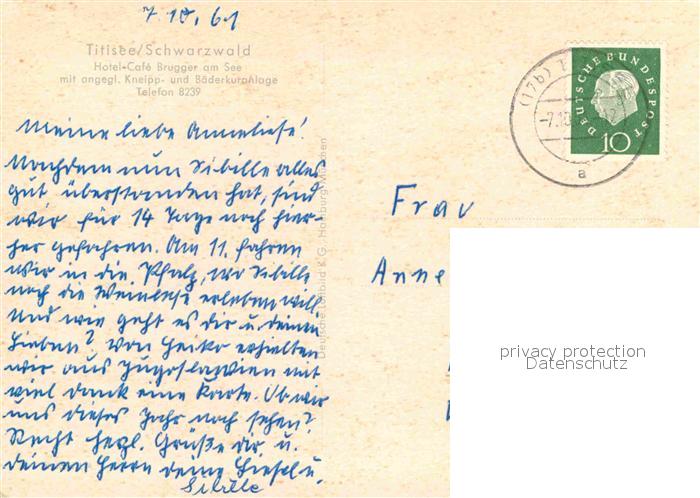 7.10.61
Titisee/Schwarzwald
Hotel-Café Brugger am See
mit angegl. Kneipp- und Bäderkuranlage
Telefon 8239
Meine liebe Anneliese!
Nachdem nun Sibille alles
gut überstanden hat, sind
wir für 14 Tage noch hier-
her gefahren. Am 11. fahren
wir in die Pfalz, wo Sibille
noch die Weinlese erleben will.
Und wie geht es dir u. deinen
Lieben? Von Heiko erhielten
wir aus Jugoslawien mit
viel Dank eine Karte. Ob wir
uns dieses Jahr noch sehen?
Recht herzl. Grüße dir u.
deinen Herrn deine Liesel u.
Sibille
Frau
Anne
DEUTSCHE BUNDESPOST
10
(17b)
-7.10.
a
privacy protection
Datenschutz